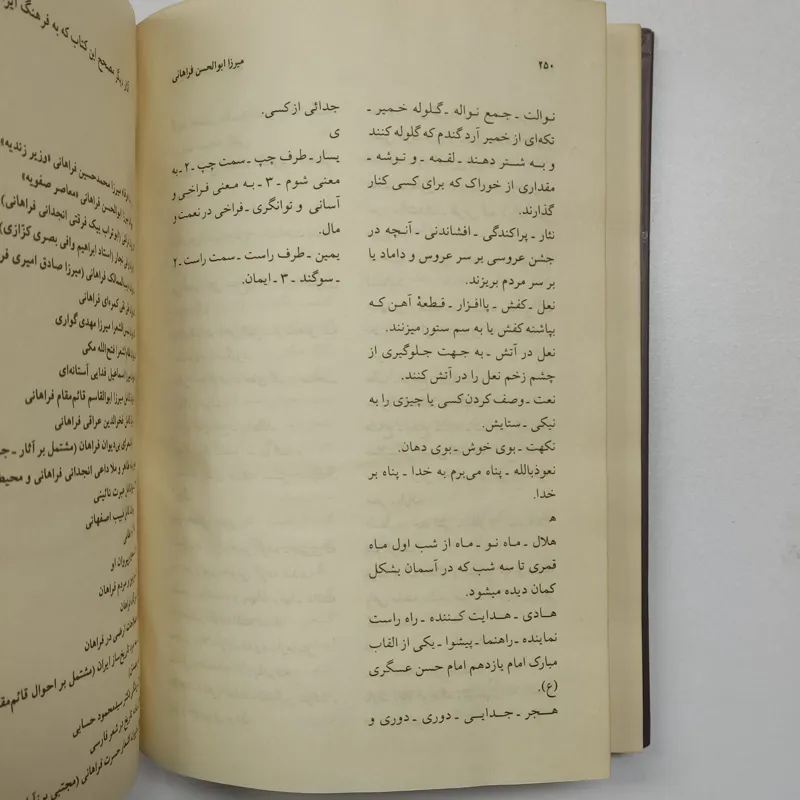 ۲۵۰
میرزا ابوالحسن فراهانی
نوالت ـ جمع نواله ـ گلوله خمیر ـ
تکه‌ای از خمیر آرد گندم که گلوله کنند
و به شتر دهند ـ لقمه ـ و نوشه ـ
مقداری از خوراک که برای کسی کنار
گذارند.
نثار ـ پراکندگی ـ افشاندنی ـ آنچه در
جشن عروسی بر سر عروس و داماد یا
بر سر مردم بریزند.
نعل ـ کفش ـ پاافزار ـ قطعهٔ آهن که
بپاشنه کفش یا به سم ستور میزنند.
نعل در آتش ـ به جهت جلوگیری از
چشم زخم نعل را در آتش کنند.
نعت ـ وصف کردن کسی یا چیزی را به
نیکی ـ ستایش.
نکهت ـ بوی خوش ـ بوی دهان.
نعوذبالله ـ پناه می‌برم به خدا ـ پناه بر
خدا.
ه
هلال ـ ماه نو ـ ماه از شب اول ماه
قمری تا سه شب که در آسمان بشکل
کمان دیده میشود.
هادی ـ هدایت کننده ـ راه راست
نماینده ـ راهنما ـ پیشوا ـ یکی از القاب
مبارک امام یازدهم امام حسن عسگری
(ع).
هجر ـ جدایی ـ دوری ـ دوری و
جدائی از کسی.
ی
یسار ـ طرف چپ ـ سمت چپ ـ ۲ ـ به
معنی شوم ـ ۳ ـ به معنی فراخی و
آسانی و توانگری ـ فراخی در نعمت و
مال.
یمین ـ طرف راست ـ سمت راست ـ ۲
ـ سوگند ـ ۳ ـ ایمان.
آثار دیگر مصحح این کتاب که به فرهنگ
میرزا محمدحسین فراهانی «وزیر زندیه»
ابوالحسن فراهانی «معاصر صفویه»
(ابوتراب بیک فرقتی انجدانی فراهانی)
(استاد ابراهیم وافی بصری کزازی)
فراهانی (میرزا صادق امیری
کمره‌ای فراهانی
میرزا مهدی گواری
فتح‌الله مکی
اسماعیل فدایی آستانه‌ای
میرزا ابوالقاسم قائم‌مقام فراهانی
فخرالدین عراقی فراهانی
بی‌دیوان فراهان (مشتمل بر آثار ـ
و ملا داعی انجدانی فراهانی و محیط
عبرت نائینی
اصفهانی
پیروان او
و مردم فراهان
ارضی در فراهان
تاریخ‌ساز ایران (مشتمل بر احوال
دکتر سید محمود حسابی
تاریخ در شعر فارسی
اشعار حسرت فراهانی (مجتبی